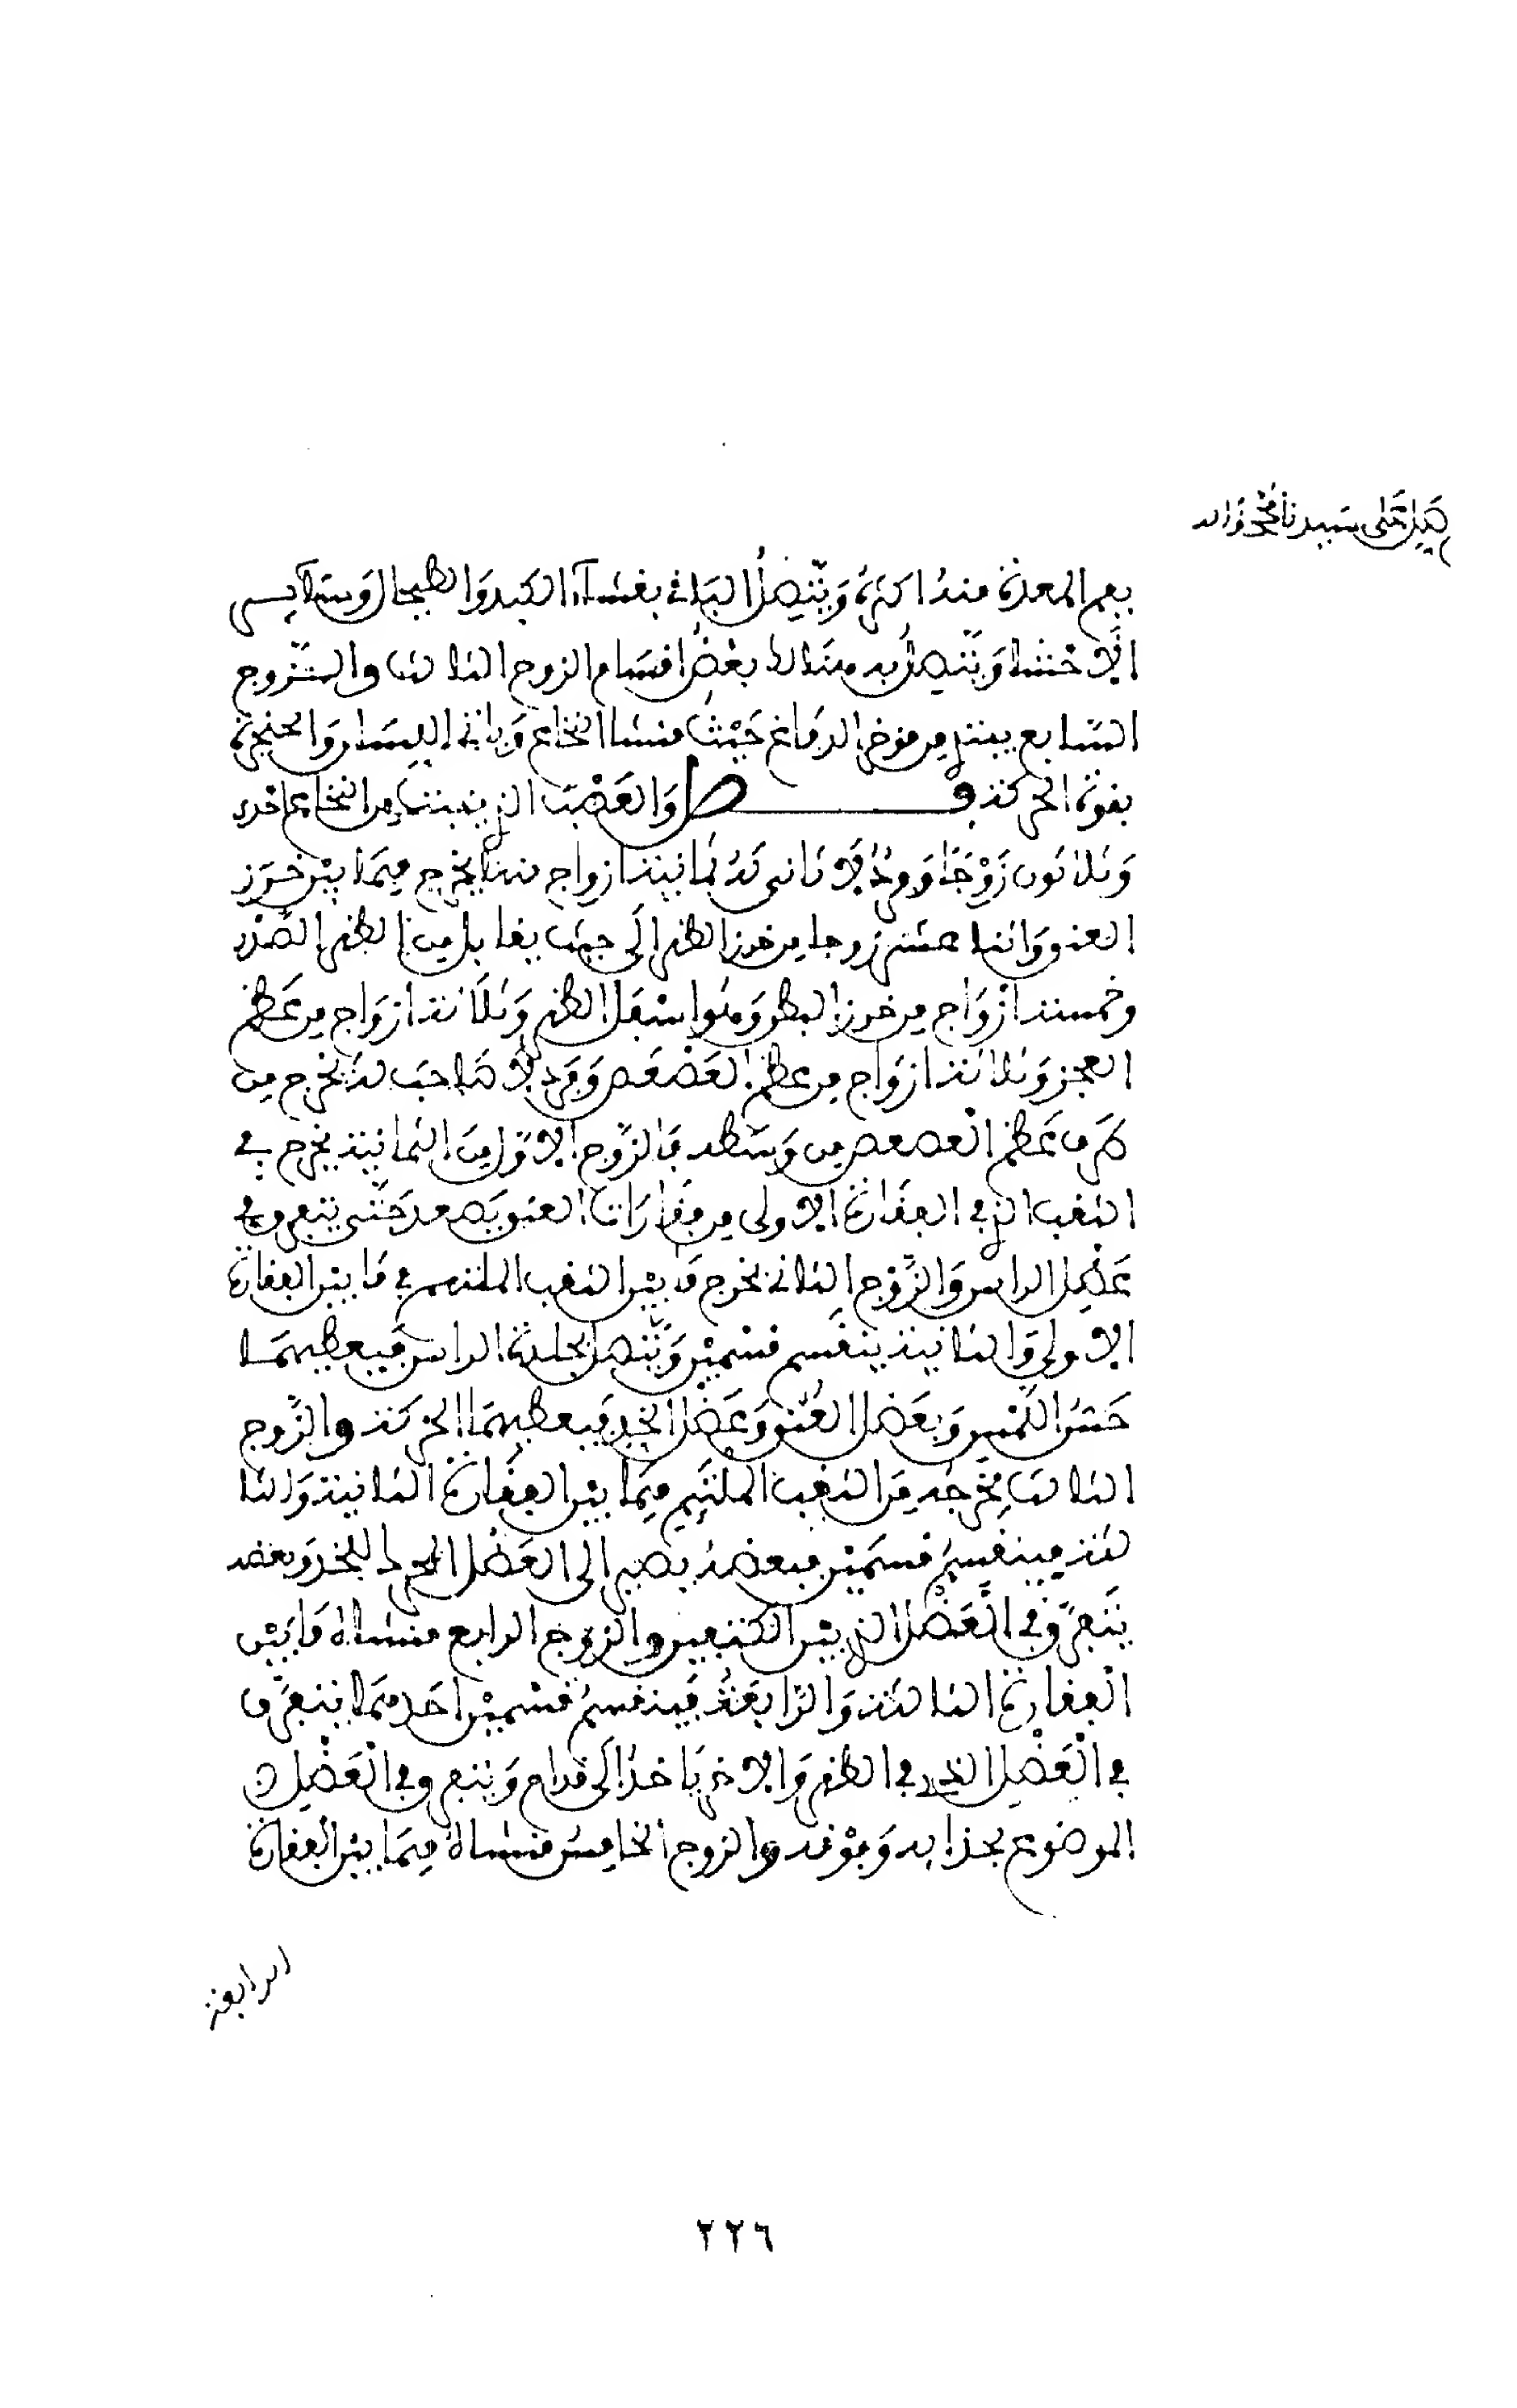 صل على سيدنا محمد واله
بفم المعدة منه اكثره ويتصل الباقي بغشاء الكبد والطحال وسائر
الاحشاء ويتصل به هنالك بعض اقسام الزوج الثالث والزوج
السابع يبتدئ من مؤخر الدماغ حيث منشا النخاع وياتي اللسان والحنجرة
بقوة الحركة فصل والعصب الذي ينبت من النخاع احد
وثلاثون زوجا وفرد لا ثاني له ثمانية ازواج منها يخرج فيما بين خرز
العنق واثنا عشر زوجا من خرز الظهر الى حيث يقابل من الظهر الصدر
وخمسة ازواج من خرز البطن وهو اسفل الظهر وثلاثة ازواج من عظم
العجز وثلاثة ازواج من عظم العصعص وفرد لا صاحب له يخرج من
طرف عظم العصعص من وسطه فالزوج الاول من الثمانية يخرج في
الثقب الذي في الفقارة الاولى من فقارات العنق ويصعد حتى يتفرق في
عضل الراس والزوج الثاني يخرج ما بين الثقب الملتئم في ما بين الفقارة
الاولى والثانية ينقسم قسمين ويتصل بجلدة الراس فيعطيهما
حس اللمس وبعضل العنق وعضل الخد فيعطيهما الحركة والزوج
الثالث مخرجه من الثقب الملتئم فيما بين الفقارة الثانية والثا
لثة فينقسم قسمين فبعضه يصير الى العضل المحرك للخد وبعضه
يتفرق في العضل الذي بين الكتفين والزوج الرابع منشاه ما بين
الفقارة الثالثة والرابعة فينقسم قسمين احدهما يتفرق
في العضل الذي في الظهر والاخر ياخذ الى قدام ويتفرق في العضل
الموضوع بحذايه وفوقه والزوج الخامس منشاه فيما بين الفقارة
الرابعة
٢٢٦